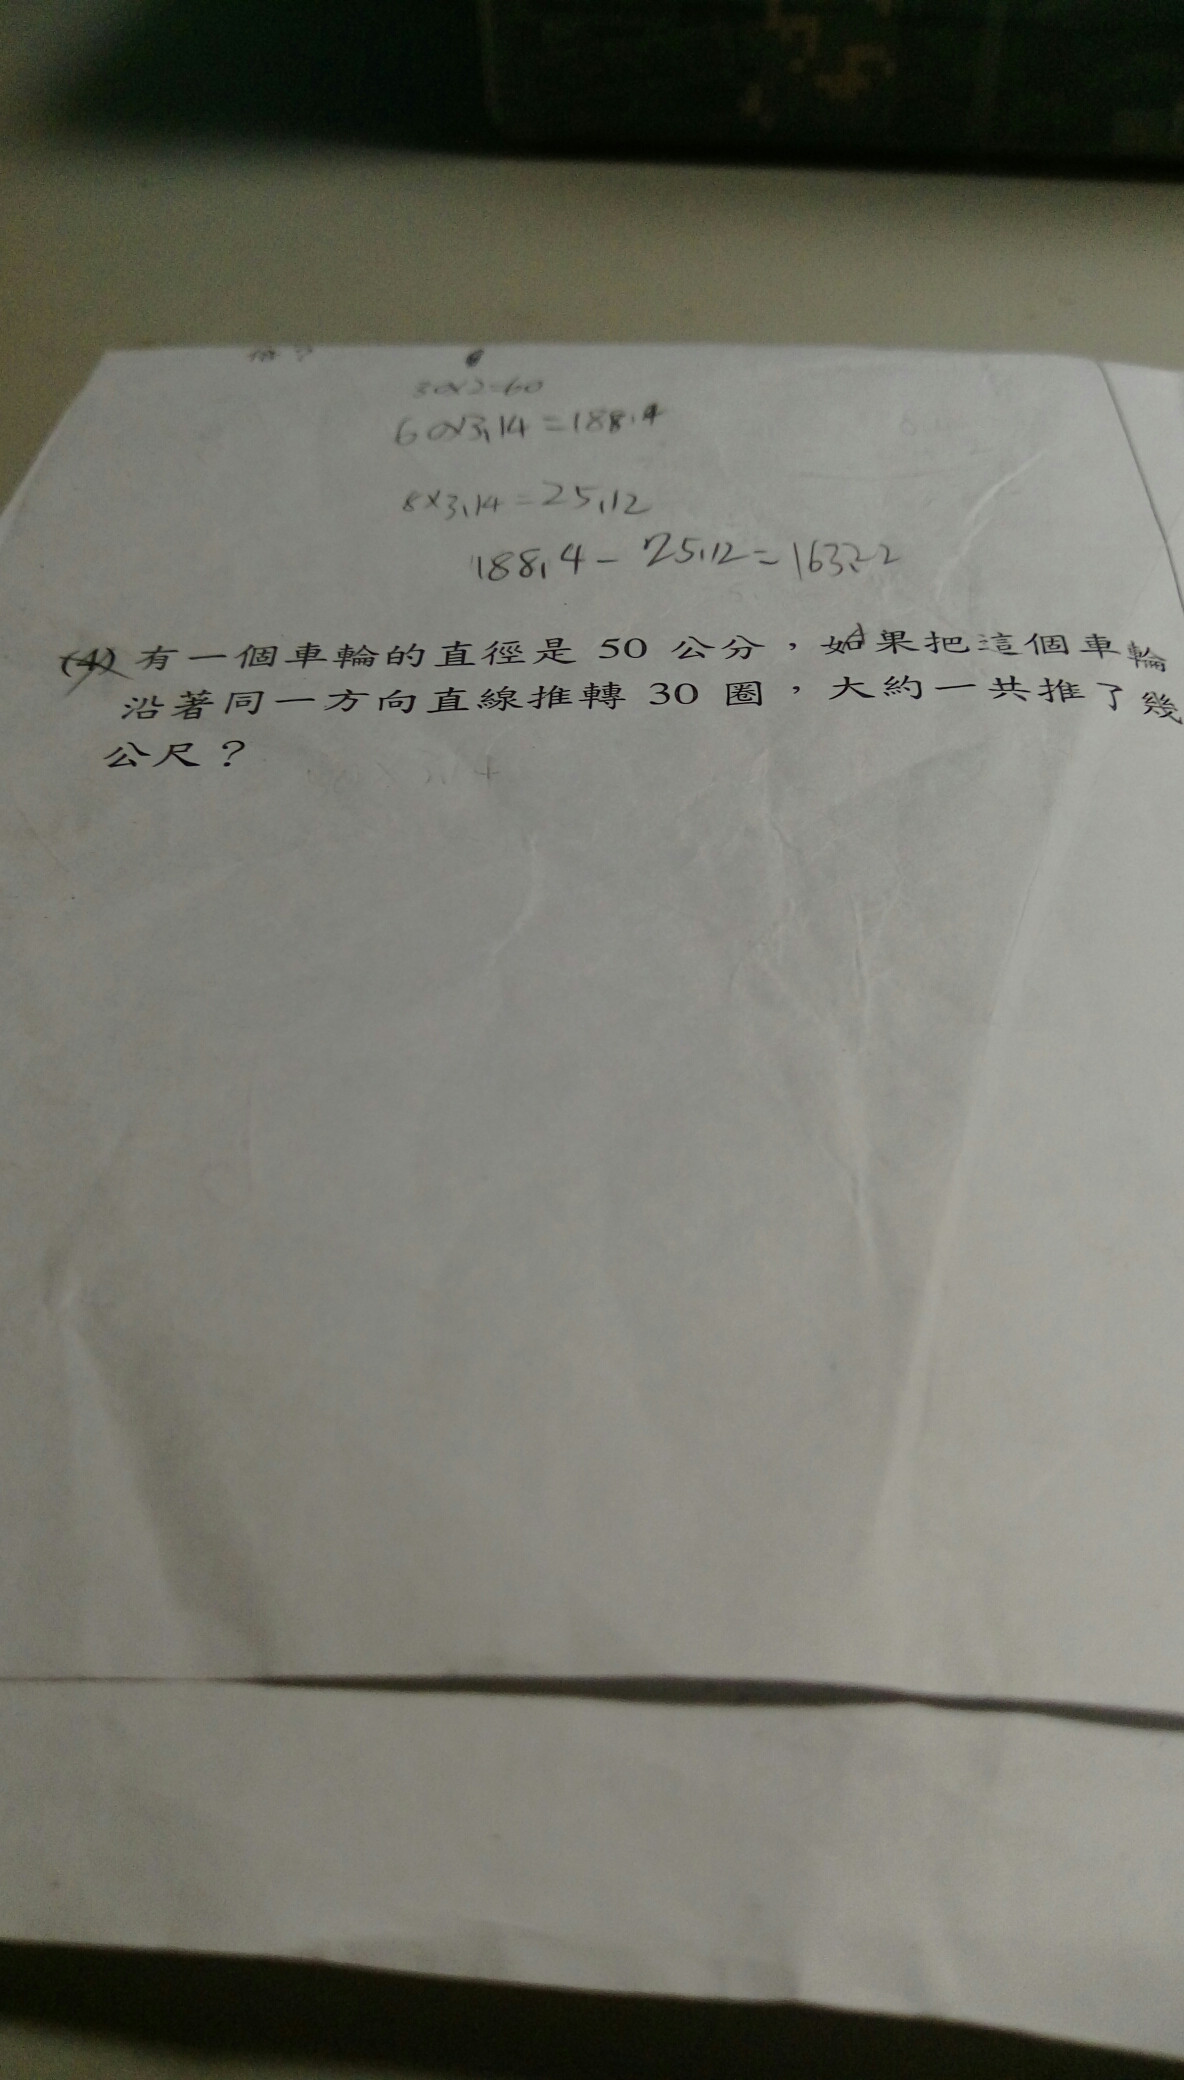 倍?
30×2=60
60×3.14=188.4
8×3.14=25.12
188.4-25.12=163.22
(4) 有一個車輪的直徑是 50 公分，如果把這個車輪
沿著同一方向直線推轉 30 圈，大約一共推了幾
公尺？